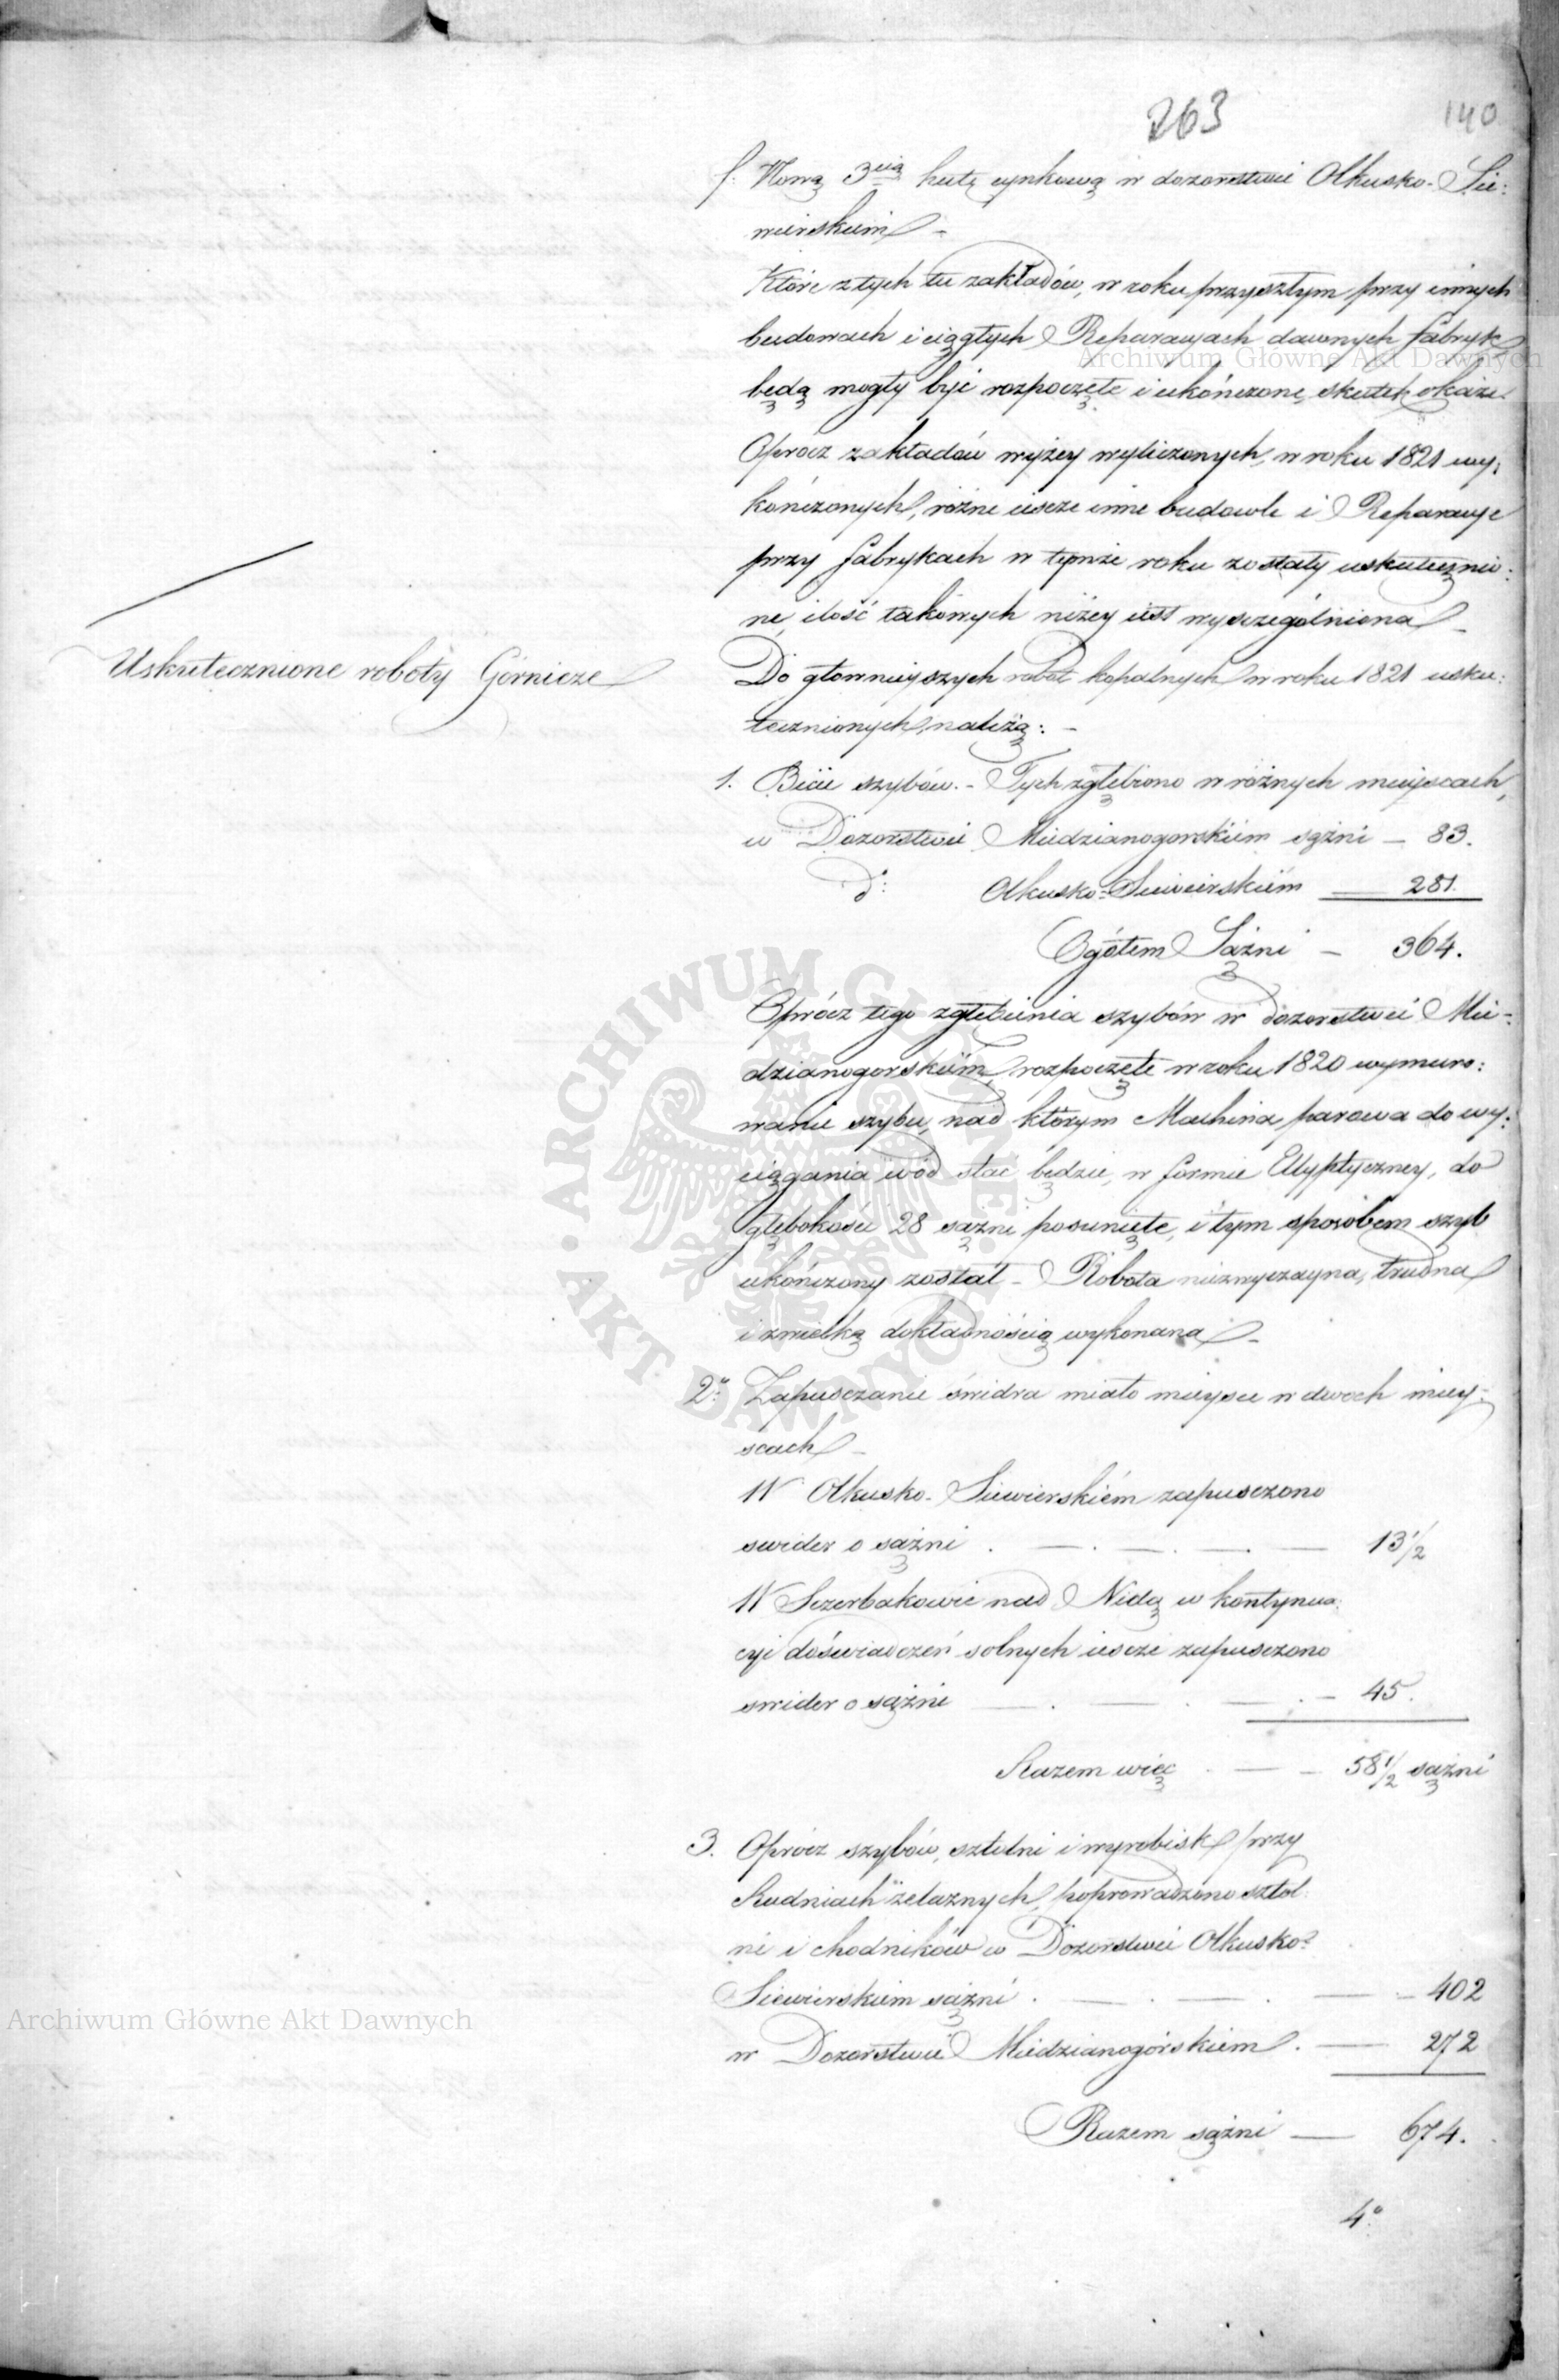 263
140
f. Nową 3cią hutę cynkową w dozorstwie Olkusko-Sie:
wierskim –
Które z tych tu zakładów, w roku przyszłym przy innych
budowach i ciągłych Reparacyach dawnych fabryk
będą mogły być rozpoczęte i ukończone, skutek okaże.
Oprócz zakładów wyżey wyliczonych, w roku 1821 wy:
kończonych, różne ieszcze inne budowle i Reparacye
przy fabrykach w tymże roku zostały uskutecznio:
ne, ilość takowych niżey iest wyszczególniona –
Uskutecznione roboty Górnicze
Do głownieyszych robót kopalnych w roku 1821 usku:
tecznionych, należą: –
1. Bicie szybów. – Tych zgłębiono w różnych mieyscach,
w Dozorstwie Miedzianogorskiém sążni – 83.
do: Olkusko-Siewierskiém — 281.
Ogółem Sążni – 364.
Oprócz tego zgłębienia szybów w dozorstwie Mie-
dzianogorskiém, rozpoczęte w roku 1820 wymuro:
wanie szybu, nad którym Machina parowa do wy:
ciągania wód stać będzie, w formie Elliptyczney, do
głębokości 28 sążni posunięte, i tym sposobem szyb
ukończony został – Robota niezwyczayna, trudna
i z wielką dokładnością wykonana –
2o: Zapusczanie świdra miało mieysce w dwoch miey-
scach –
W Olkusko-Siewierskiém zapusczono
swider o sążni . — . — . — . — 13 1/2
W Sczerbakowie nad Nidą w kontynua:
cyi doświadczeń solnych iescze zapusczono
swider o sążni — . — . — . – 45.
Razem więc . — – 58 1/2 sążni
3. Oprócz szybów, sztolni i wyrobisk przy
Rudniach żelaznych, poprowadzono sztol:
ni i chodników w Dozorstwie Olkusko-
Siewierskim sążni . — . — . — – 402
w Dozorstwie Miedzianogórskiem . — 272
Razem sążni — 674.
4o
Archiwum Główne Akt Dawnych
Archiwum Główne Akt Dawnych
ARCHIWUM GŁÓWNE • AKT DAWNYCH •